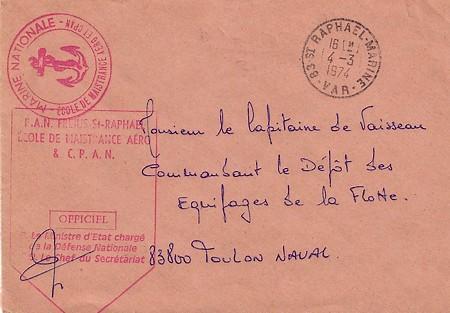 MARINE NATIONALE -
ECOLE DE MAISTRANCE AERO ET CPAN
83 ST RAPHAEL-MARINE
16 H
4-3
1974
- VAR -
B.A.N. FREJUS-St-RAPHAEL
ECOLE DE MAISTRANCE AERO
& C.P.A.N.
OFFICIEL
Le Ministre d'Etat chargé
de la Défense Nationale
Le Chef du Secrétariat
Monsieur le Capitaine de Vaisseau
Commandant le Dépôt des
Equipages de la Flotte.
83800 TOULON NAVAL.